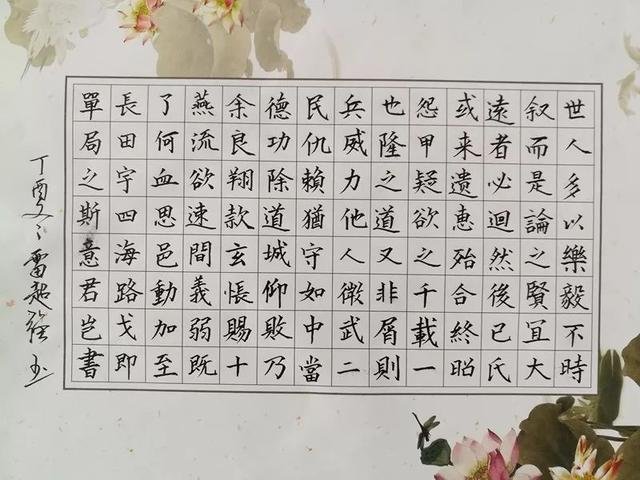 世人多以樂毅不時
叙而是論之賢冝大
遠者必迴然後已氏
或来遺惠殆合終昭
怨甲疑欲之千載一
也隆之道又非屑則
兵威力他人微武二
民仇賴猶守如中當
德功除道城仰敗乃
余良翔款玄悵賜十
燕流欲速間義弱既
了何血思邑動加至
長田宇四海路戈即
單局之斯意君岂書
丁酉雷超强书